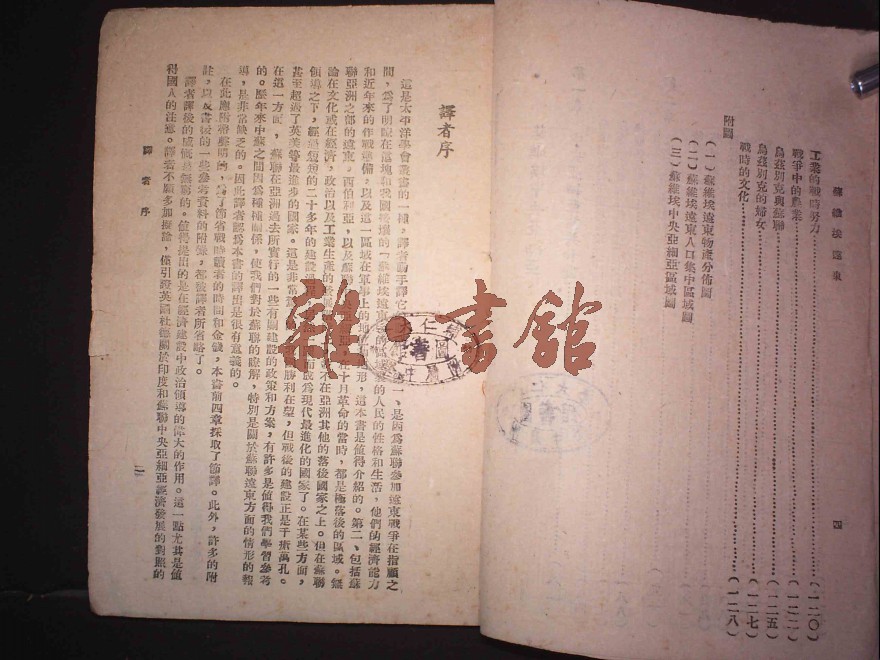 蘇維埃遠東
四
工業的戰時努力…………(一二〇)
戰爭中的農業…………(一二二)
烏茲別克與蘇聯…………(一二五)
烏茲別克的婦女…………(一二七)
戰時的文化…………(一二八)
附圖
(一)蘇維埃遠東物產分佈圖
(二)蘇維埃遠東人口集中區域圖
(三)蘇維埃中央亞細亞區域圖
譯者序
這是太平洋學會叢書的一種,譯者動手譯它,一、是因爲蘇聯參加遠東戰爭在指顧之
間,爲了明瞭在這塊和我國接壤的「蘇維埃遠東」的人民的性格和生活,他們的經濟能力
和近年來的作戰準備,以及這一區域在軍事上的地形,這本書是值得介紹的。第二、包括蘇
聯亞洲之部的遠東,西伯利亞,以及蘇聯在十月革命的當時,都是極落後的區域。無
論在文化或在經濟,政治以及工業生產的不在亞洲其他的落後國家之上。但在蘇聯
領導之下,經過短短的二十多年的建設成爲現代最進化的國家了。在某些方面,
甚至超過了英美等最進步的國家。這是非常勝利在望,但戰後的建設正是千頭萬孔。
在這一方面,蘇聯在亞洲過去所實行的一些有關建設的政策和方案,有許多是值得我們學習參考
的。歷年來中蘇之間因爲種種關係,使我們對於蘇聯的瞭解,特別是關於蘇聯遠東方面的情形的報
導,是非常缺乏的。因此譯者認爲本書的譯出是很有意義的。
在此應附帶聲明的,爲了節省戰時讀者的時間和金錢,本書前四章採取了節譯。此外,許多的附
註,以及書後的一些參考資料的附錄,都被譯者所省略了。
譯者譯後的感慨是無窮的。值得提出的是在經濟建設中政治領導的偉大的作用。這一點尤其是值
得國人的注意。譯者不願多加擬論,僅引證英國杜德關於印度和蘇聯中央亞細亞經濟發展的對照的
譯者序
一
雜·書館